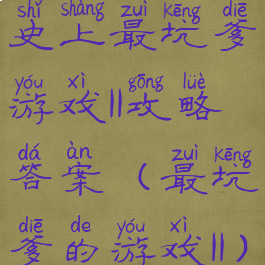 shǐ shàng zuì kēng diē
史上最坑爹
yóu xì gōng lüè
游戏||攻略
dá àn zuì kēng
答案（最坑
diē de yóu xì
爹的游戏||）